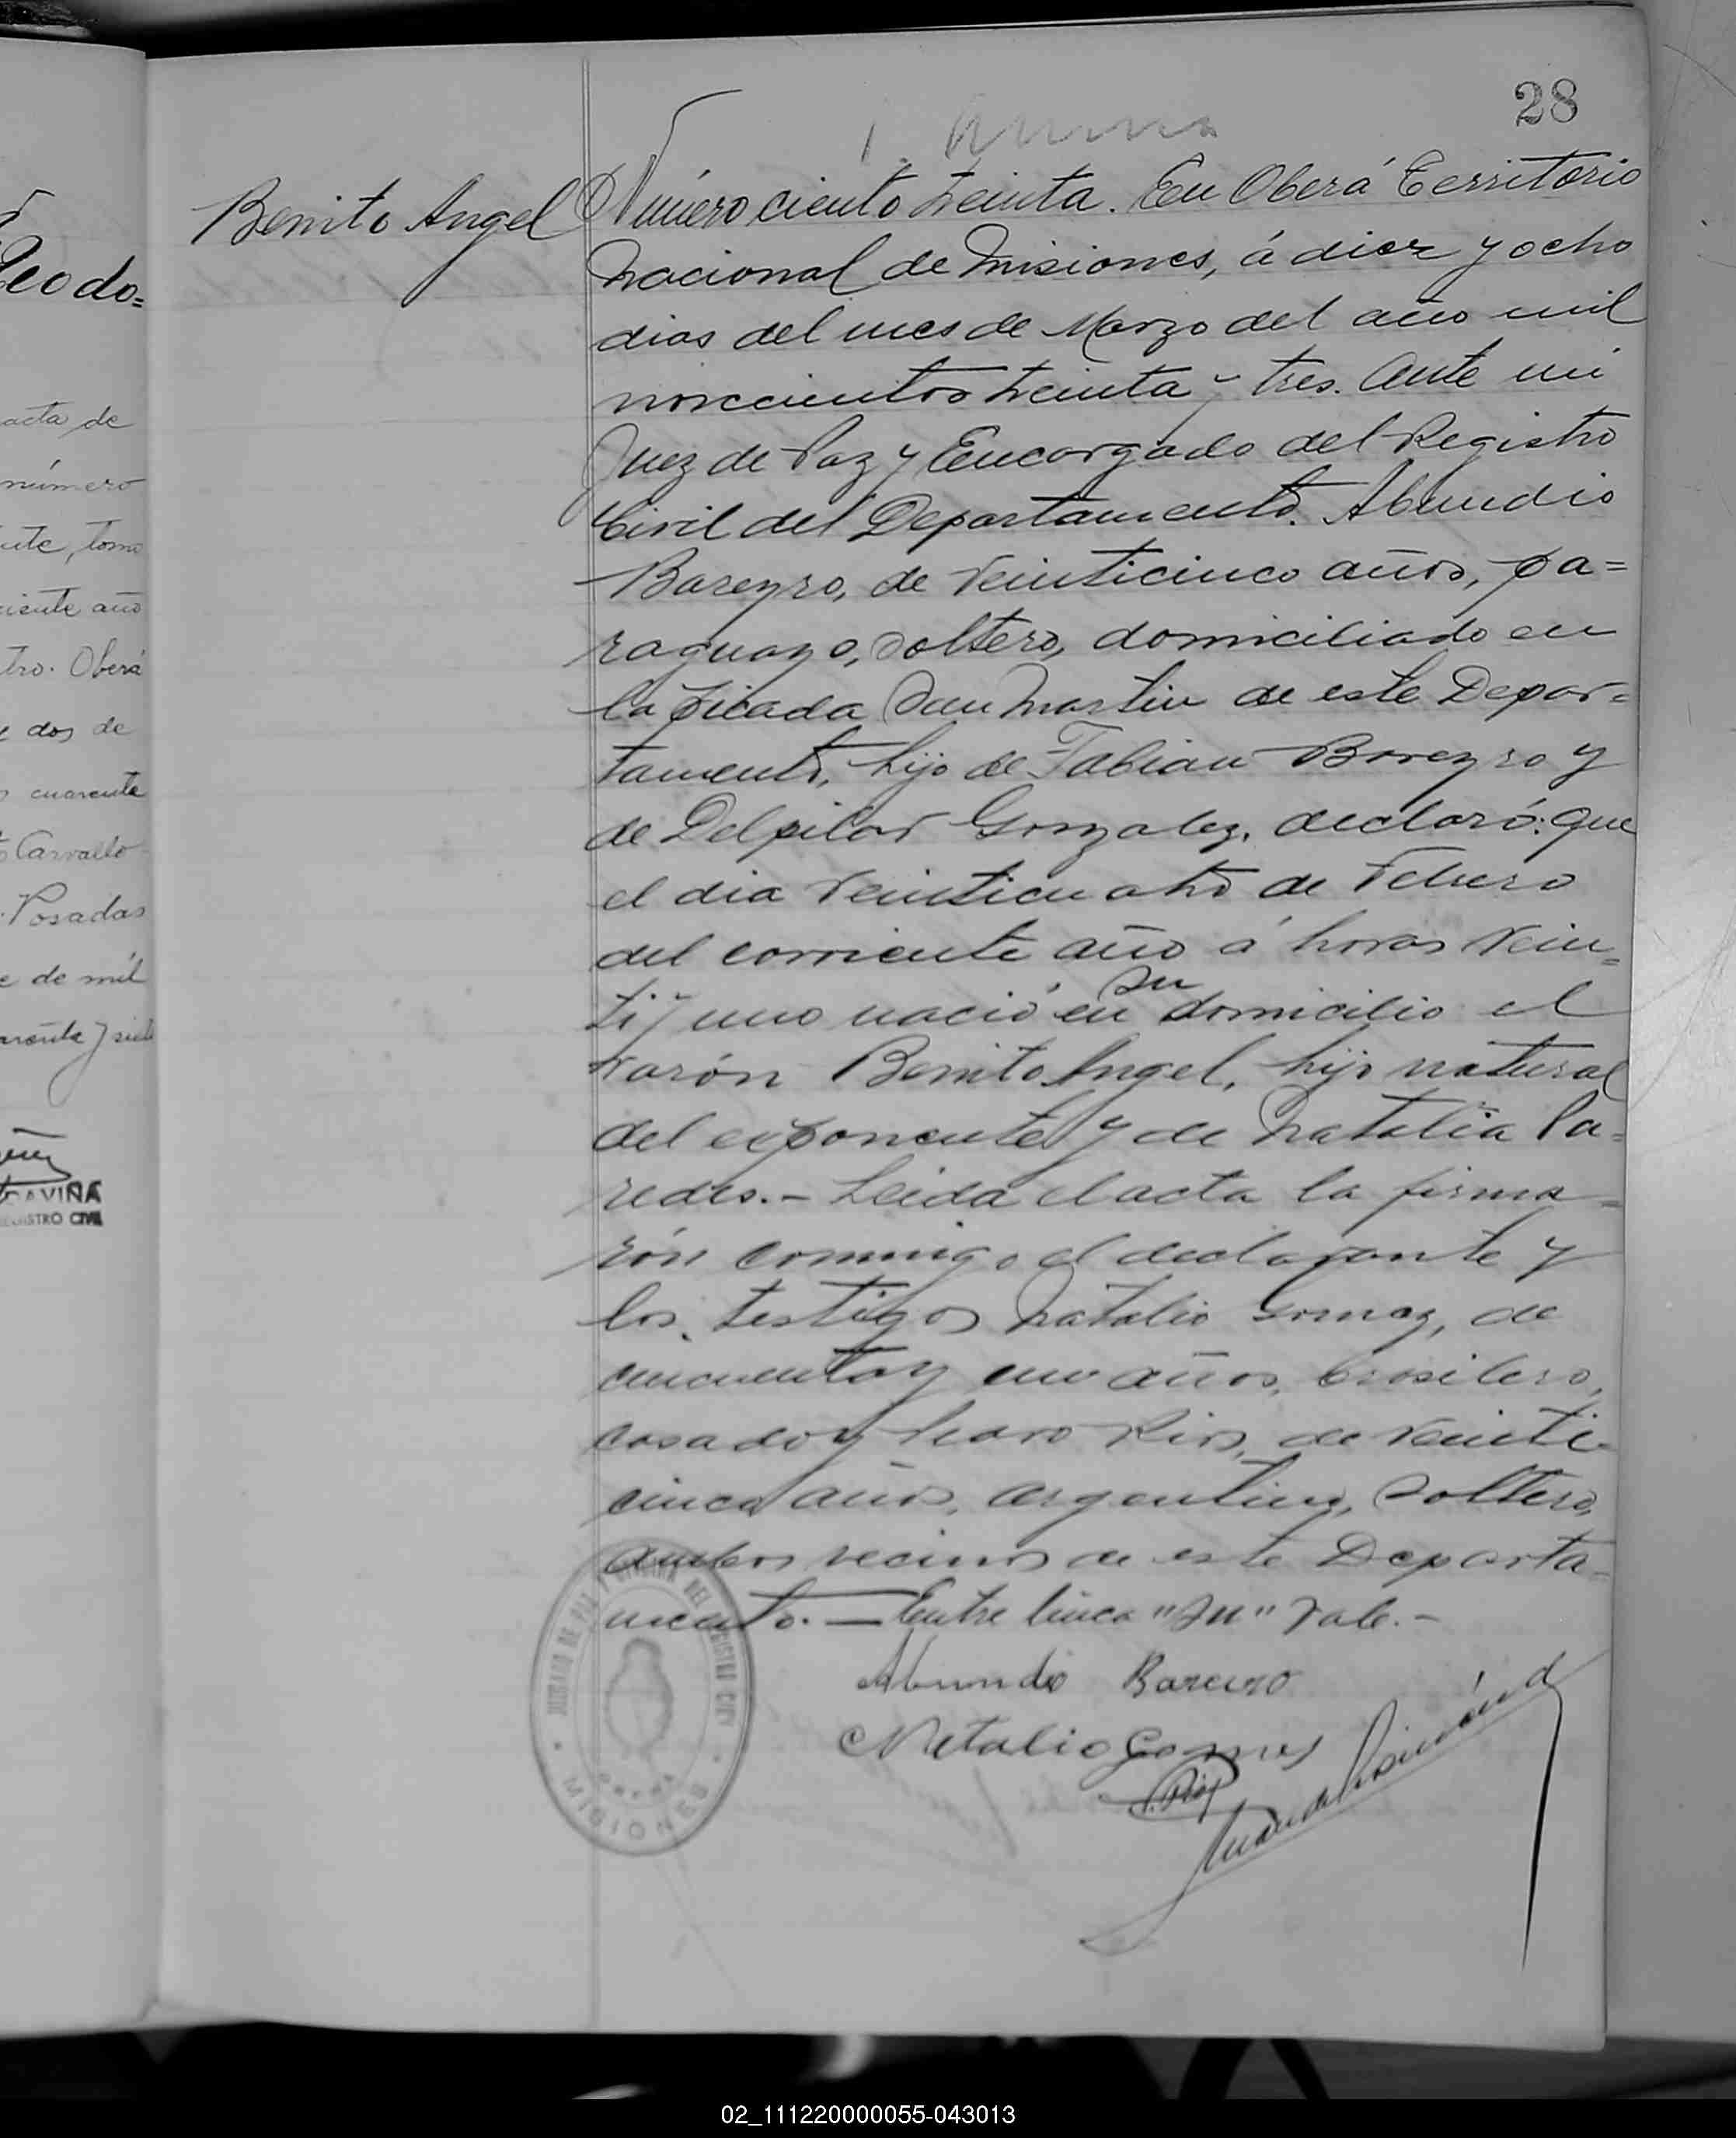 28
Benito Angel
Número ciento treinta. En Oberá Territorio
Nacional de Misiones, á diez y ocho
dias del mes de Marzo del año mil
novecientos treinta y tres. Ante mi
Juez de Paz y Encargado del Registro
Civil del Departamento. Abundio
Bareyro, de veinticinco años, pa=
raguayo, soltero, domiciliado en
la picada San Martin de este Depar=
tamento, hijo de Fabian Bareyro y
de Delpilar Gonzalez, declaró: que
el dia veinticuatro de Febrero
del corriente año á horas vein=
ti y uno nació en su domicilio el
varón Benito Angel, hijo natural
del exponente y de Natalia Pa=
redes.- Leida el acta la firma=
rón conmigo el declarante y
los testigos Natalio Gomez, de
cincuenta y uno años, brasilero,
casado y Rios, de veinti-
cinco años, argentino, soltero,
ambos vecinos de este Departa-
mento. — Entre linea "su" vale.-
Abundio Bareiro
Natalio Gomes
Rios
JUZGADO DE PAZ Y OFICINA DEL REGISTRO CIVIL
OBERA
MISIONES
Leodo=
acta de
número
tomo
año
Oberá
y dos de
cuarenta
Carvallo
Posadas
de mil
DAVIÑA
REGISTRO CIVIL
02_111220000055-043013